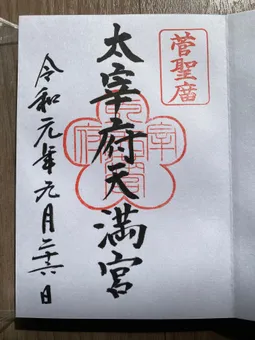 菅聖廟
太宰府天満宮
令和元年九月二十六日